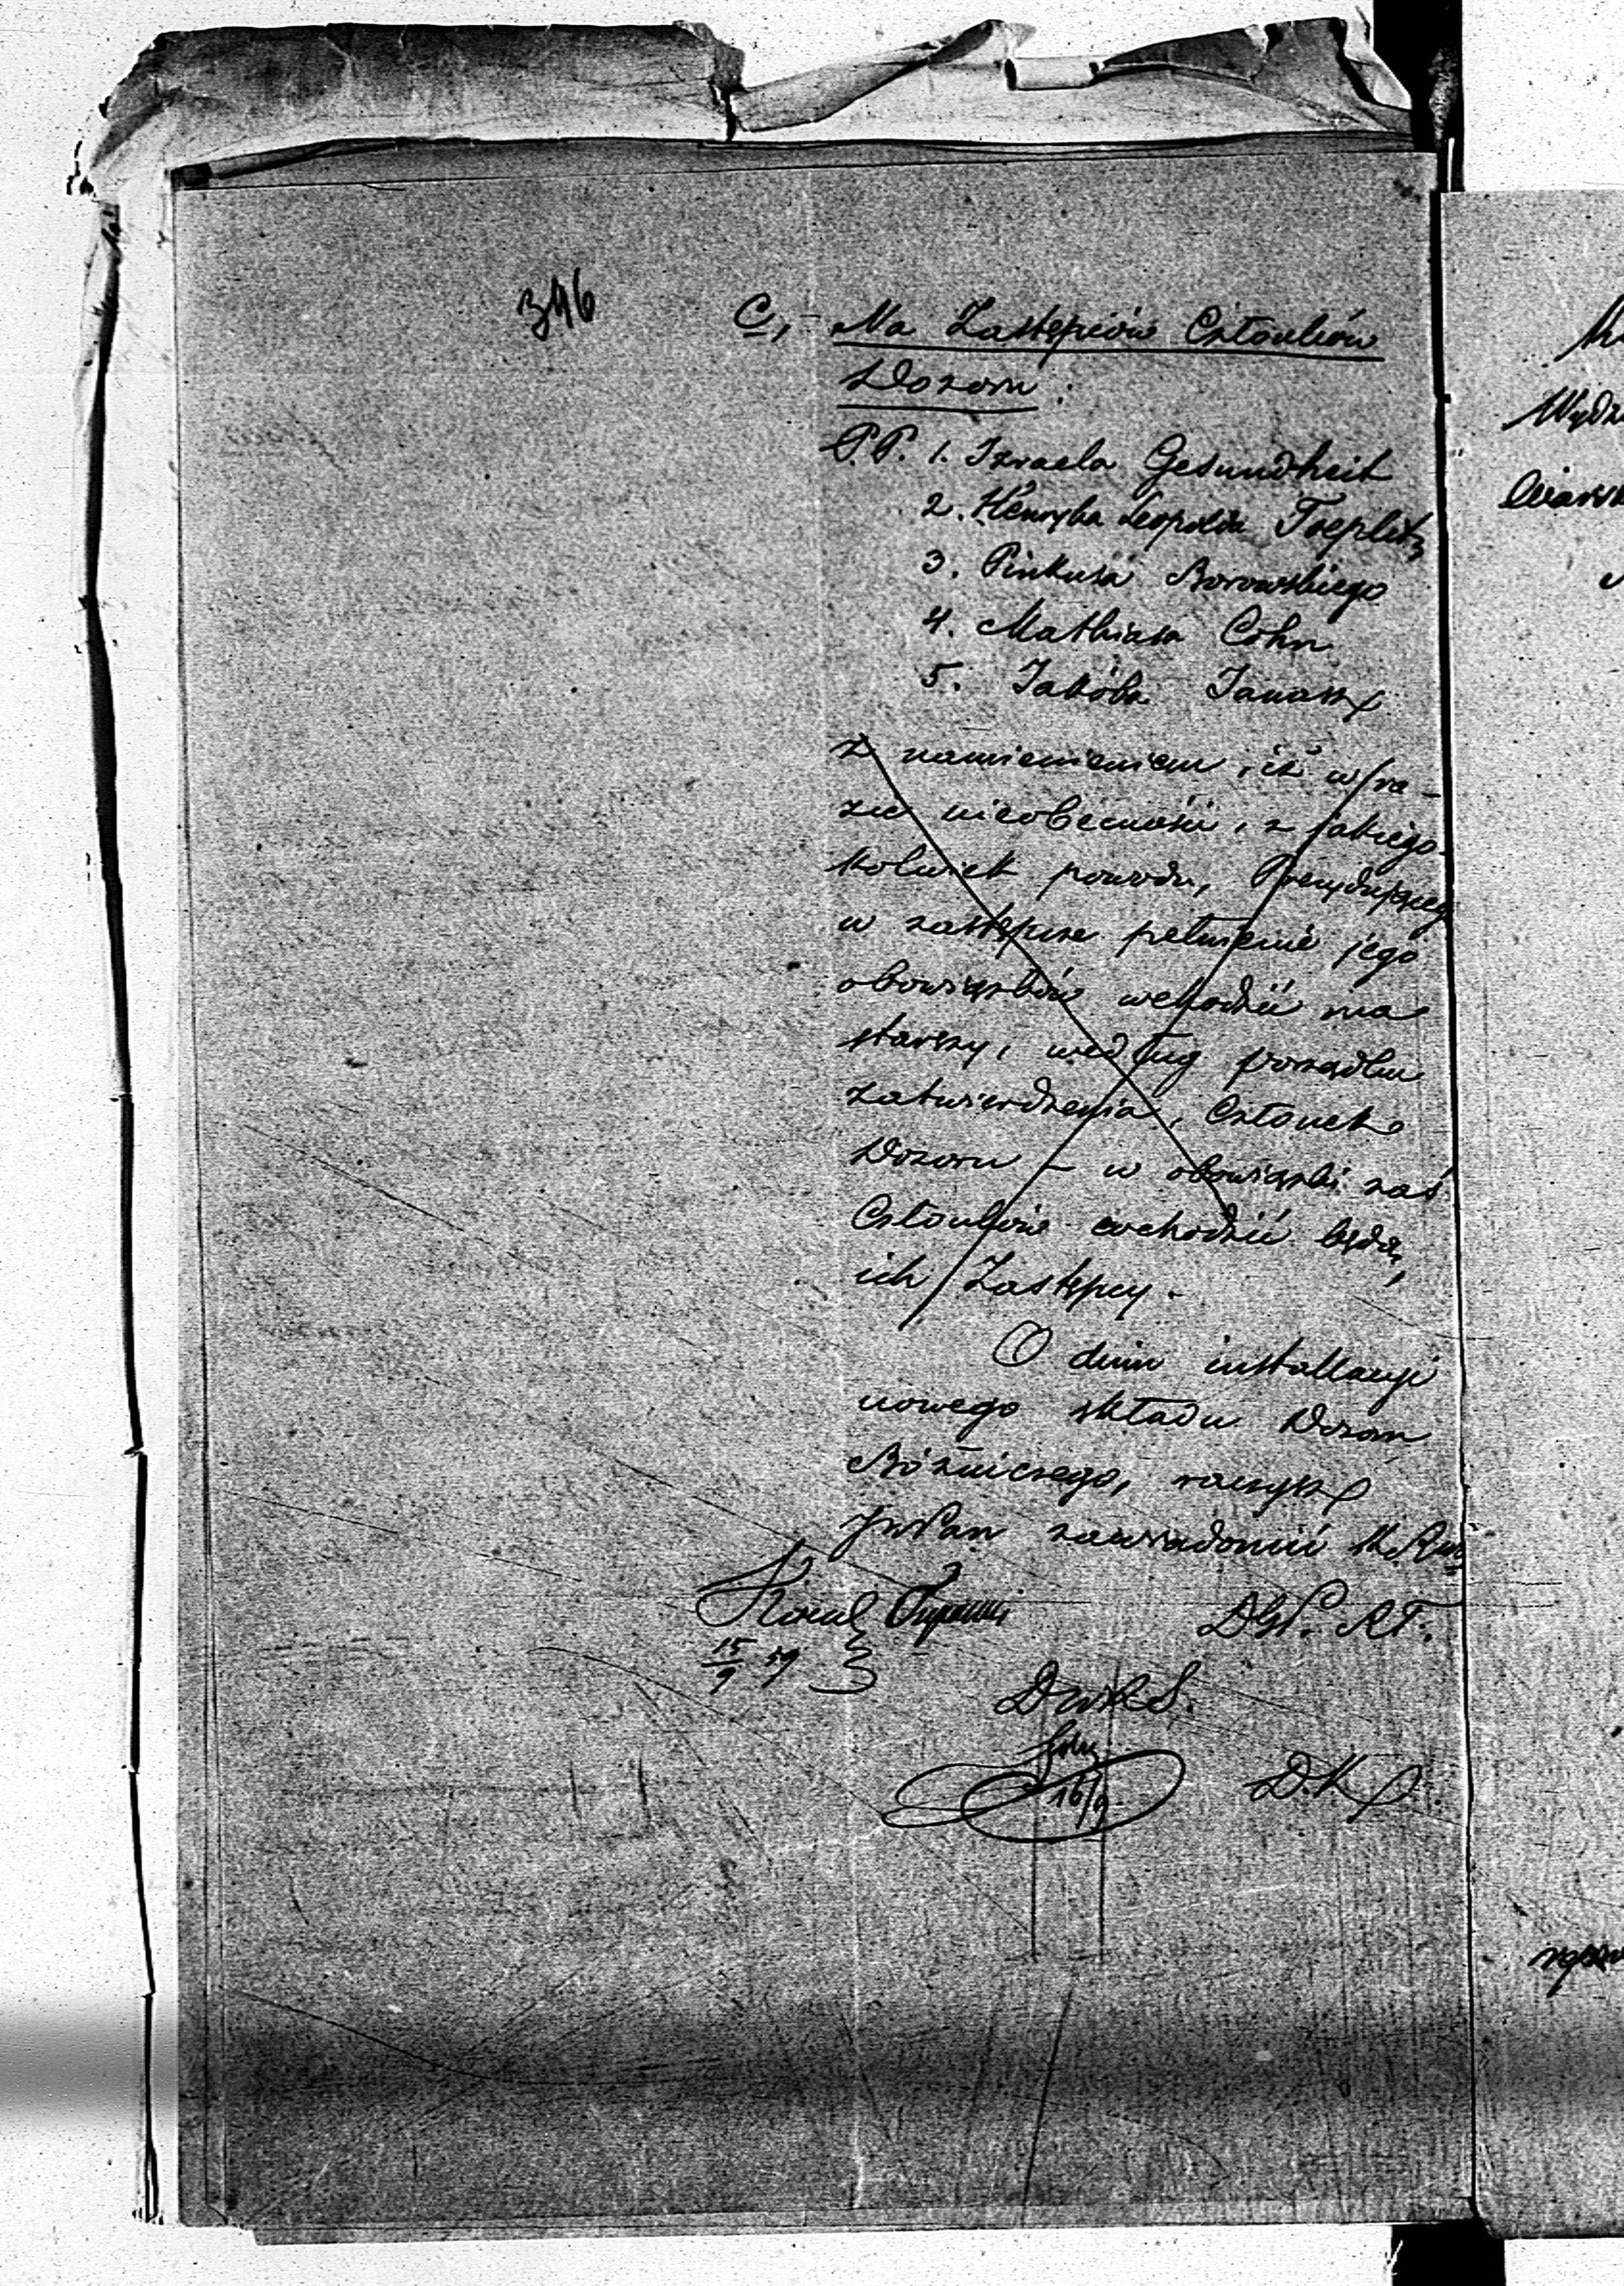 346
C, - Na Zastępców Członków
Dozoru :
P.P. 1. Izraela Gesundheit
2. Henryka Leopolda Toeplitz
3. Pinkusa Borowskiego
4. Mathiasa Cohn
5. Jakóba Janasz
z namienieniem, iż w ra-
zie nieobecności, z jakiego-
kolwiek powodu, Prezydującego
w zastępcze pełnienie jego
obowiązków wchodzić ma
starszy, według porządku
zatwierdzenia, Członek
Dozoru - w obowiązki zaś
Członków wchodzić będą,
ich Zastępcy.
O dniu installacyi
nowego składu Dozoru
Bóżniczego, raczysz
JWPan zawiadomić K. R.
15/9 59
D.G.P. R.T.
16/9
D.K.